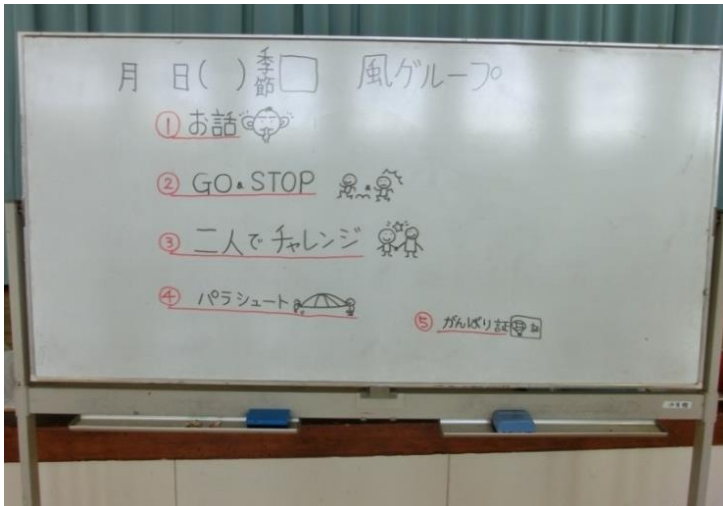 月 日( ) 季節 風グループ
① お話
② GO&STOP
③ 二人でチャレンジ
④ パラシュート
⑤ がんばり証